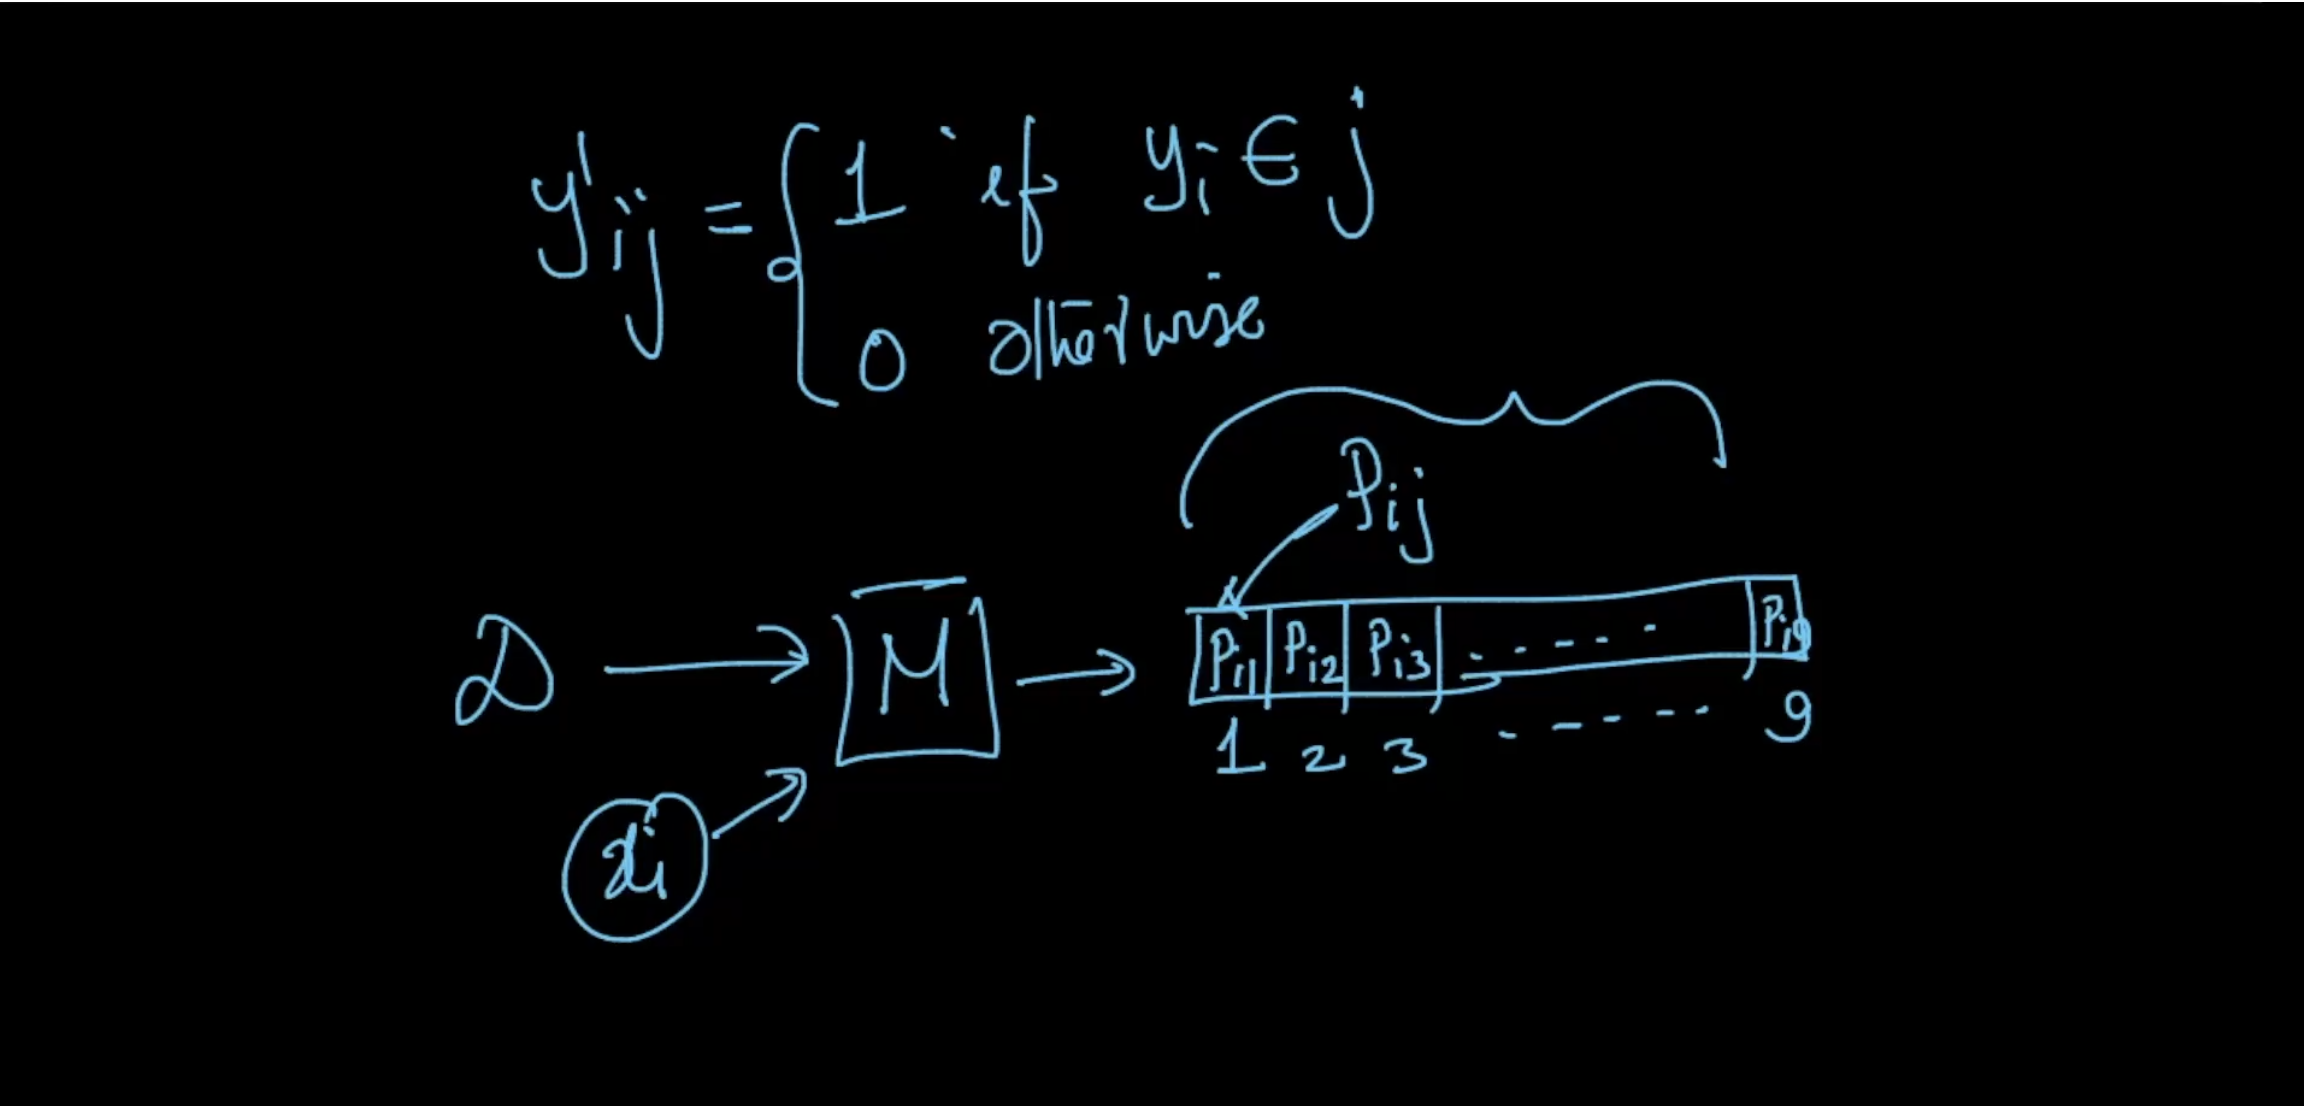 y'ij = { 1 if yi ∈ j
0 otherwise
Pij
D → M → Pi1 Pi2 Pi3 ..... Pi9
1 2 3 ----- 9
xi